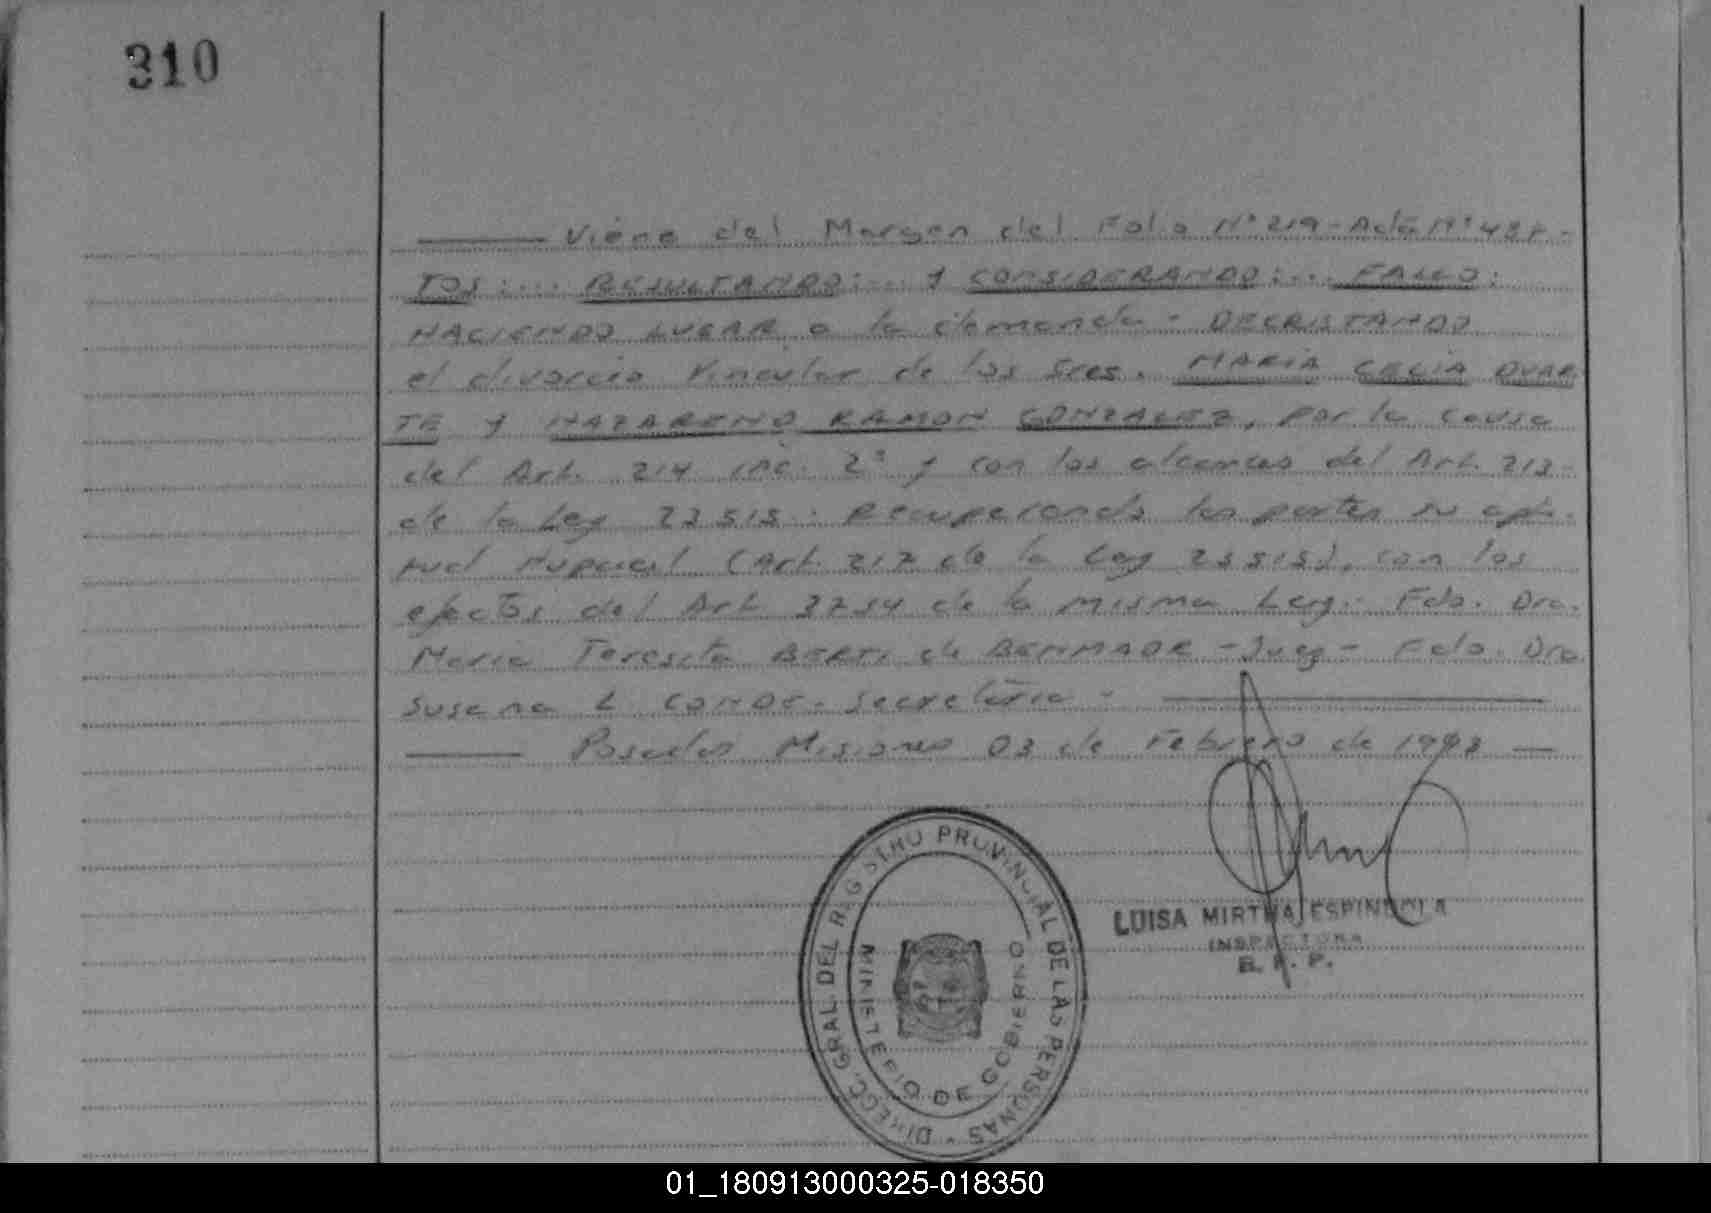 310
Viene del Margen del Folio Nº 219 - Acta Nº
TOS:... RESULTANDO:... y CONSIDERANDO:... FALLO:
HACIENDO LUGAR a la demanda - DECRETANDO
el divorcio Vincular de los Sres. MARIA CELIA DUAR
TE y NAZARENO RAMON GONZALEZ, por la causa
del Art. 214 inc. 2º y con los alcances del Art. 213
de la Ley 23515. Recuperando las partes su apti-
tud nupcial (Art. 217 de la Ley 23515), con los
efectos del Art. 3754 de la misma Ley. Fdo. Dra.
Maria Teresita BERTI de BENMAOR - Juez - Fdo. Dra
Susana L. CONDE. Secretaria -
Posadas Misiones 03 de Febrero de 1993
LUISA MIRTHA ESPINDOLA
INSPECTORA
R. P. P.
DIRECC. GRAL DEL REGISTRO PROVINCIAL DE LAS PERSONAS
MINISTERIO DE GOBIERNO
01_180913000325-018350